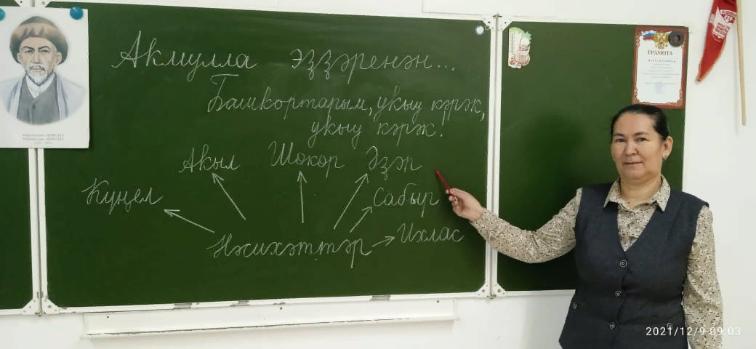 Акмулла эҙҙәренән...
Башкортарым, укыу кәрәк,
укыу кәрәк!
Акыл Шөкөр Әҙәп
Күңел Сабыр
Нәсихәттәр Ихлас
ГРАМОТА
2021/12/9 09:03